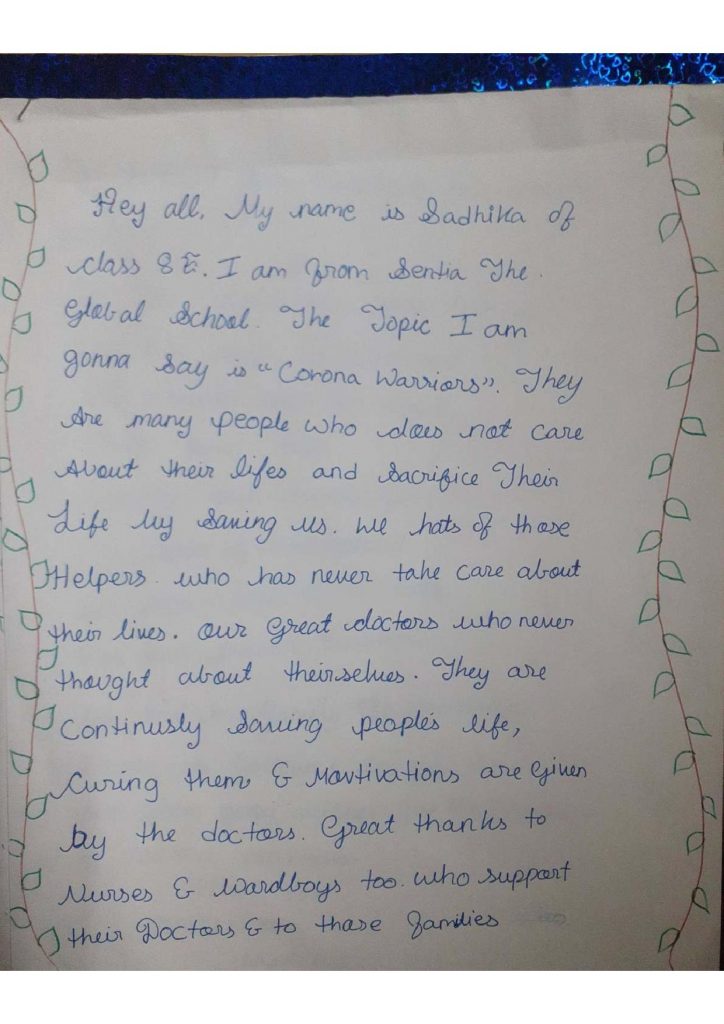 Hey all, My name is Sadhika of
class 8 E. I am from Sentia The
Global School. The Topic I am
gonna say is "Corona Warriors". They
Are many people who does not care
About their lifes and Sacrifice Their
Life by Saving us. We hats of those
Helpers who has never take care about
their lives. Our Great doctors who never
thought about theirselves. They are
Continusly Saving people's life,
Curing them & Mavtivations are Given
by the doctors. Great thanks to
Nurses & Wardboys too. who support
their Doctors & to those families